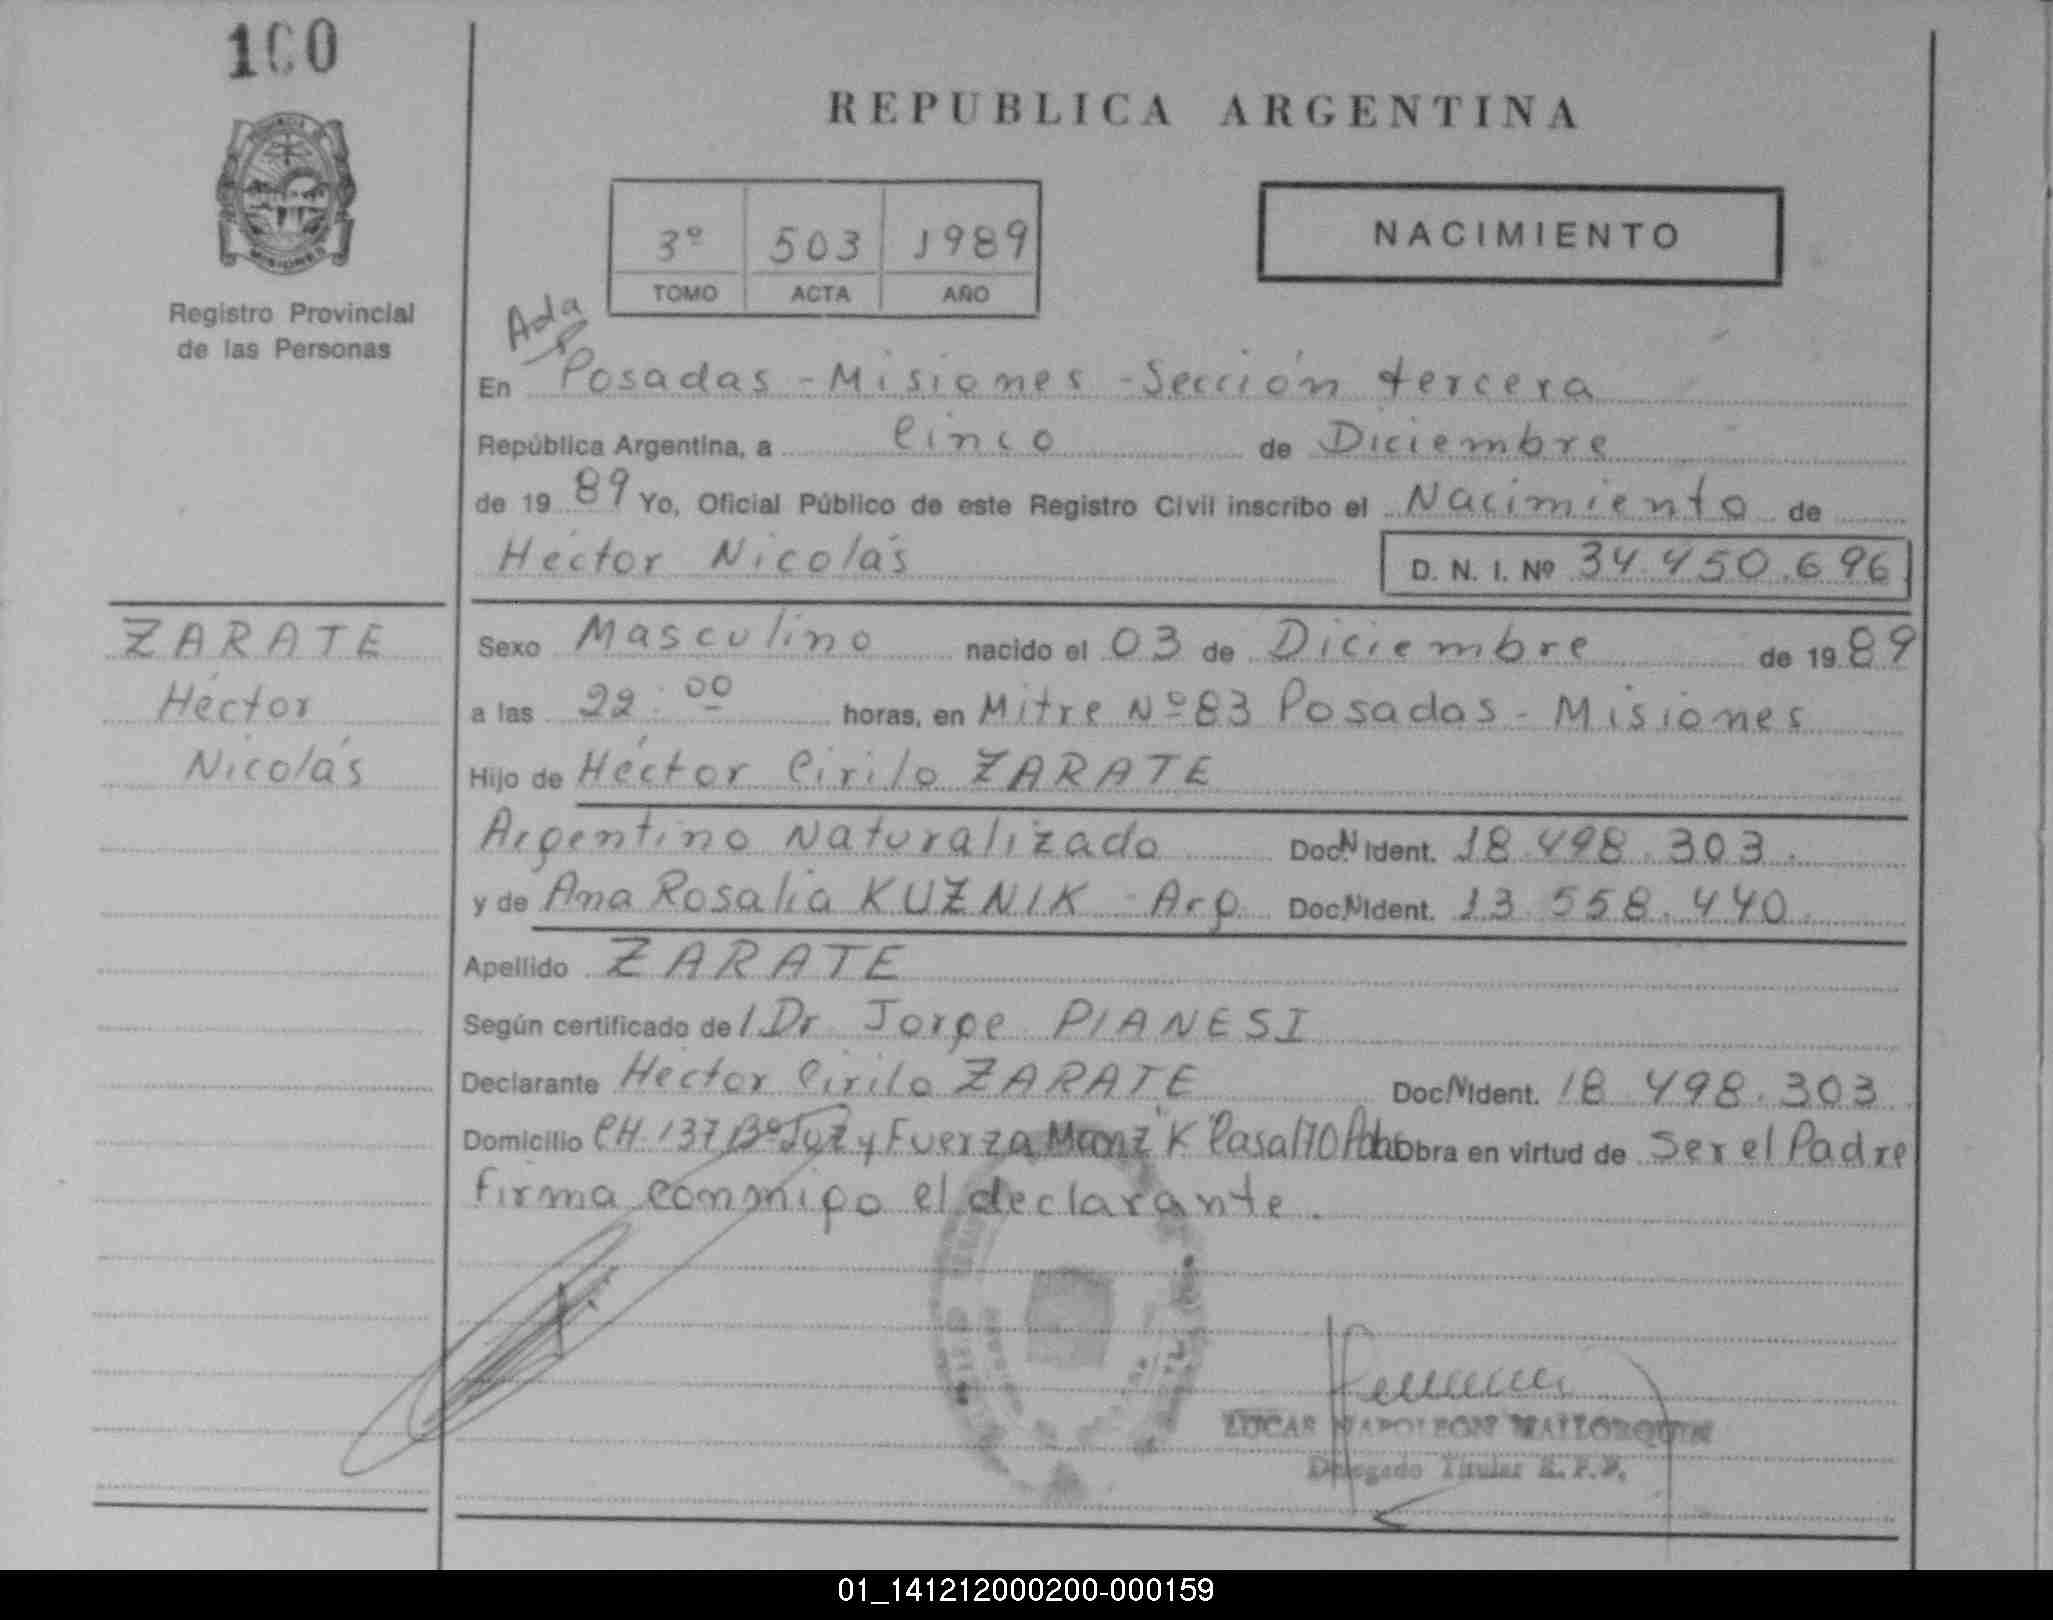 100
REPUBLICA ARGENTINA
3º 503 1989
TOMO ACTA AÑO
NACIMIENTO
Registro Provincial
de las Personas
Ada
En Posadas - Misiones - Sección tercera
República Argentina, a Cinco de Diciembre
de 19 89 Yo, Oficial Público de este Registro Civil inscribo el Nacimiento de
Héctor Nicolás D. N. I. Nº 34.450.696
ZARATE
Héctor
Nicolás
Sexo Masculino nacido el 03 de Diciembre de 19 89
a las 22:00 horas, en Mitre Nº 83 Posadas - Misiones
Hijo de Héctor Cirilo ZARATE
Argentino Naturalizado Doc. N Ident. 18.498.303.
y de Ana Rosalia KUZNIK - Arg. Doc. N Ident. 13.558.440.
Apellido ZARATE
Según certificado del Dr. Jorge PIANESI
Declarante Hector Cirilo ZARATE Doc. N Ident. 18.498.303
Domicilio CH. 137 Bº Luz y Fuerza Manz "K" Casa 170 Pdas Obra en virtud de Ser el Padre
firma conmigo el declarante.
LUCAS NAPOLEON MALLORQUIN
Delegado Titular R.P.P.
01_141212000200-000159